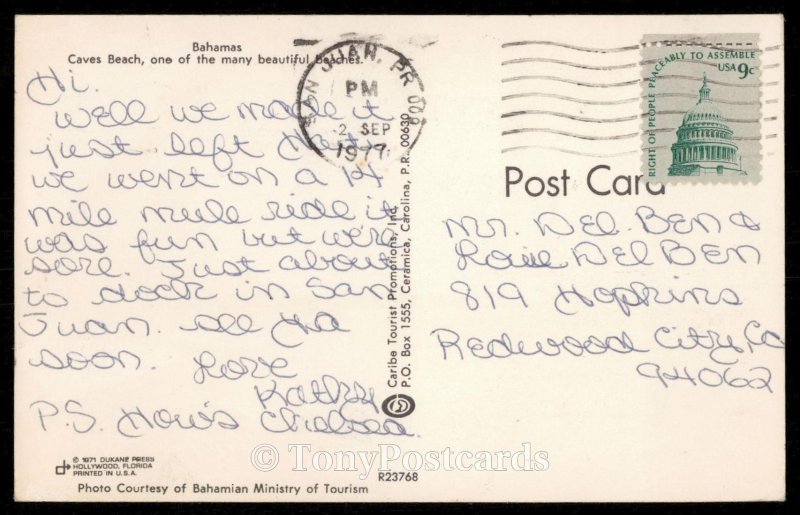 Bahamas
Caves Beach, one of the many beautiful beaches.
Hi.
Well we made it
just left
we went on a 14
mile mule ride it
was fun but we're
sore. Just about
to dock in San
Juan. See Ya
soon. Love
Kathy
P.S. How's Chelsea.
© 1971 DUKANE PRESS
HOLLYWOOD, FLORIDA
PRINTED IN U.S.A.
Photo Courtesy of Bahamian Ministry of Tourism
R23768
Caribe Tourist Promotions, Inc.
P.O. Box 1555, Ceramica, Carolina, P.R. 00630
SAN JUAN, PR 009
PM
2 SEP
1977
RIGHT OF PEOPLE PEACEABLY TO ASSEMBLE
USA 9c
Post Card
Mr. Del Ben &
DelBen
819 Hopkins
Redwood City, Ca
94062
© TonyPostcards